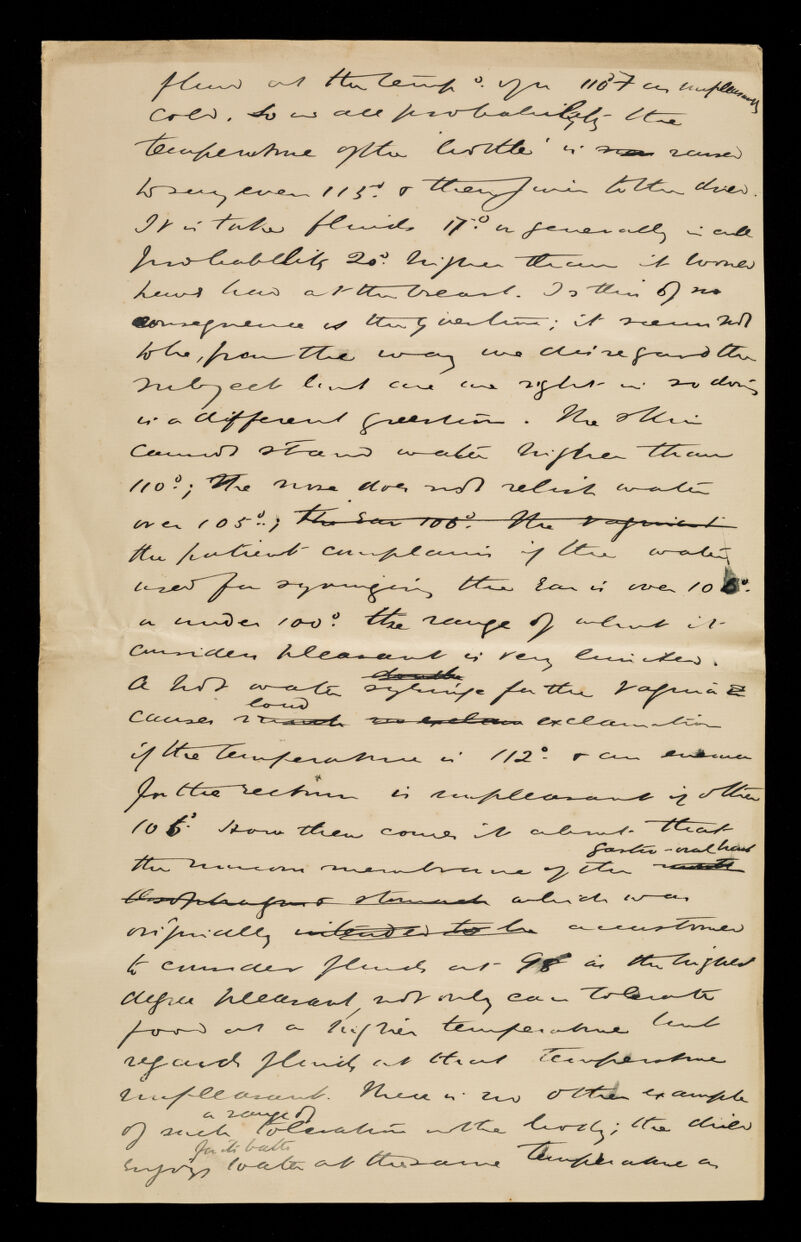 fluid at the temp°. of 110° F as unpleasantly
cold. So in all probability the
temperature of the 'bottle' is raised
to say even 115°. & then given to the child.
It is take fluids 17.° or generally in all
probability 20°. higher than it would
have had at the breast. Is this of no
consequence is the question; it seems not
to be, from the way we disregard the
subject but are we right in so doing
is a different question. The skin
cannot stand water higher than
110°.; The nose does not relish water
over 105°.; the Ear 106°. The vagina
the patient complains if the water
used for syringing the Ear is over 106°.
or under 100°. the range of what it
considers pleasant is very limited.
A hot water douche syringe for the vagina
causes loud exclamation
if the temperature is 112°. & an enema
for the rectum is unpleasant if other
105° How then comes it about that
the mucous membrane of the gastro-oral tract
Oesophagus & stomach which was
originally intended to be accustomed
to consider fluids at 98 as the highest
degree pleasant, not only can tolerate
food at a higher temperature but
regards fluids at that temperature
unpleasant. There is no other example
of such a range of toleration in the body; the child
enjoys for its bath water at the same temperature as